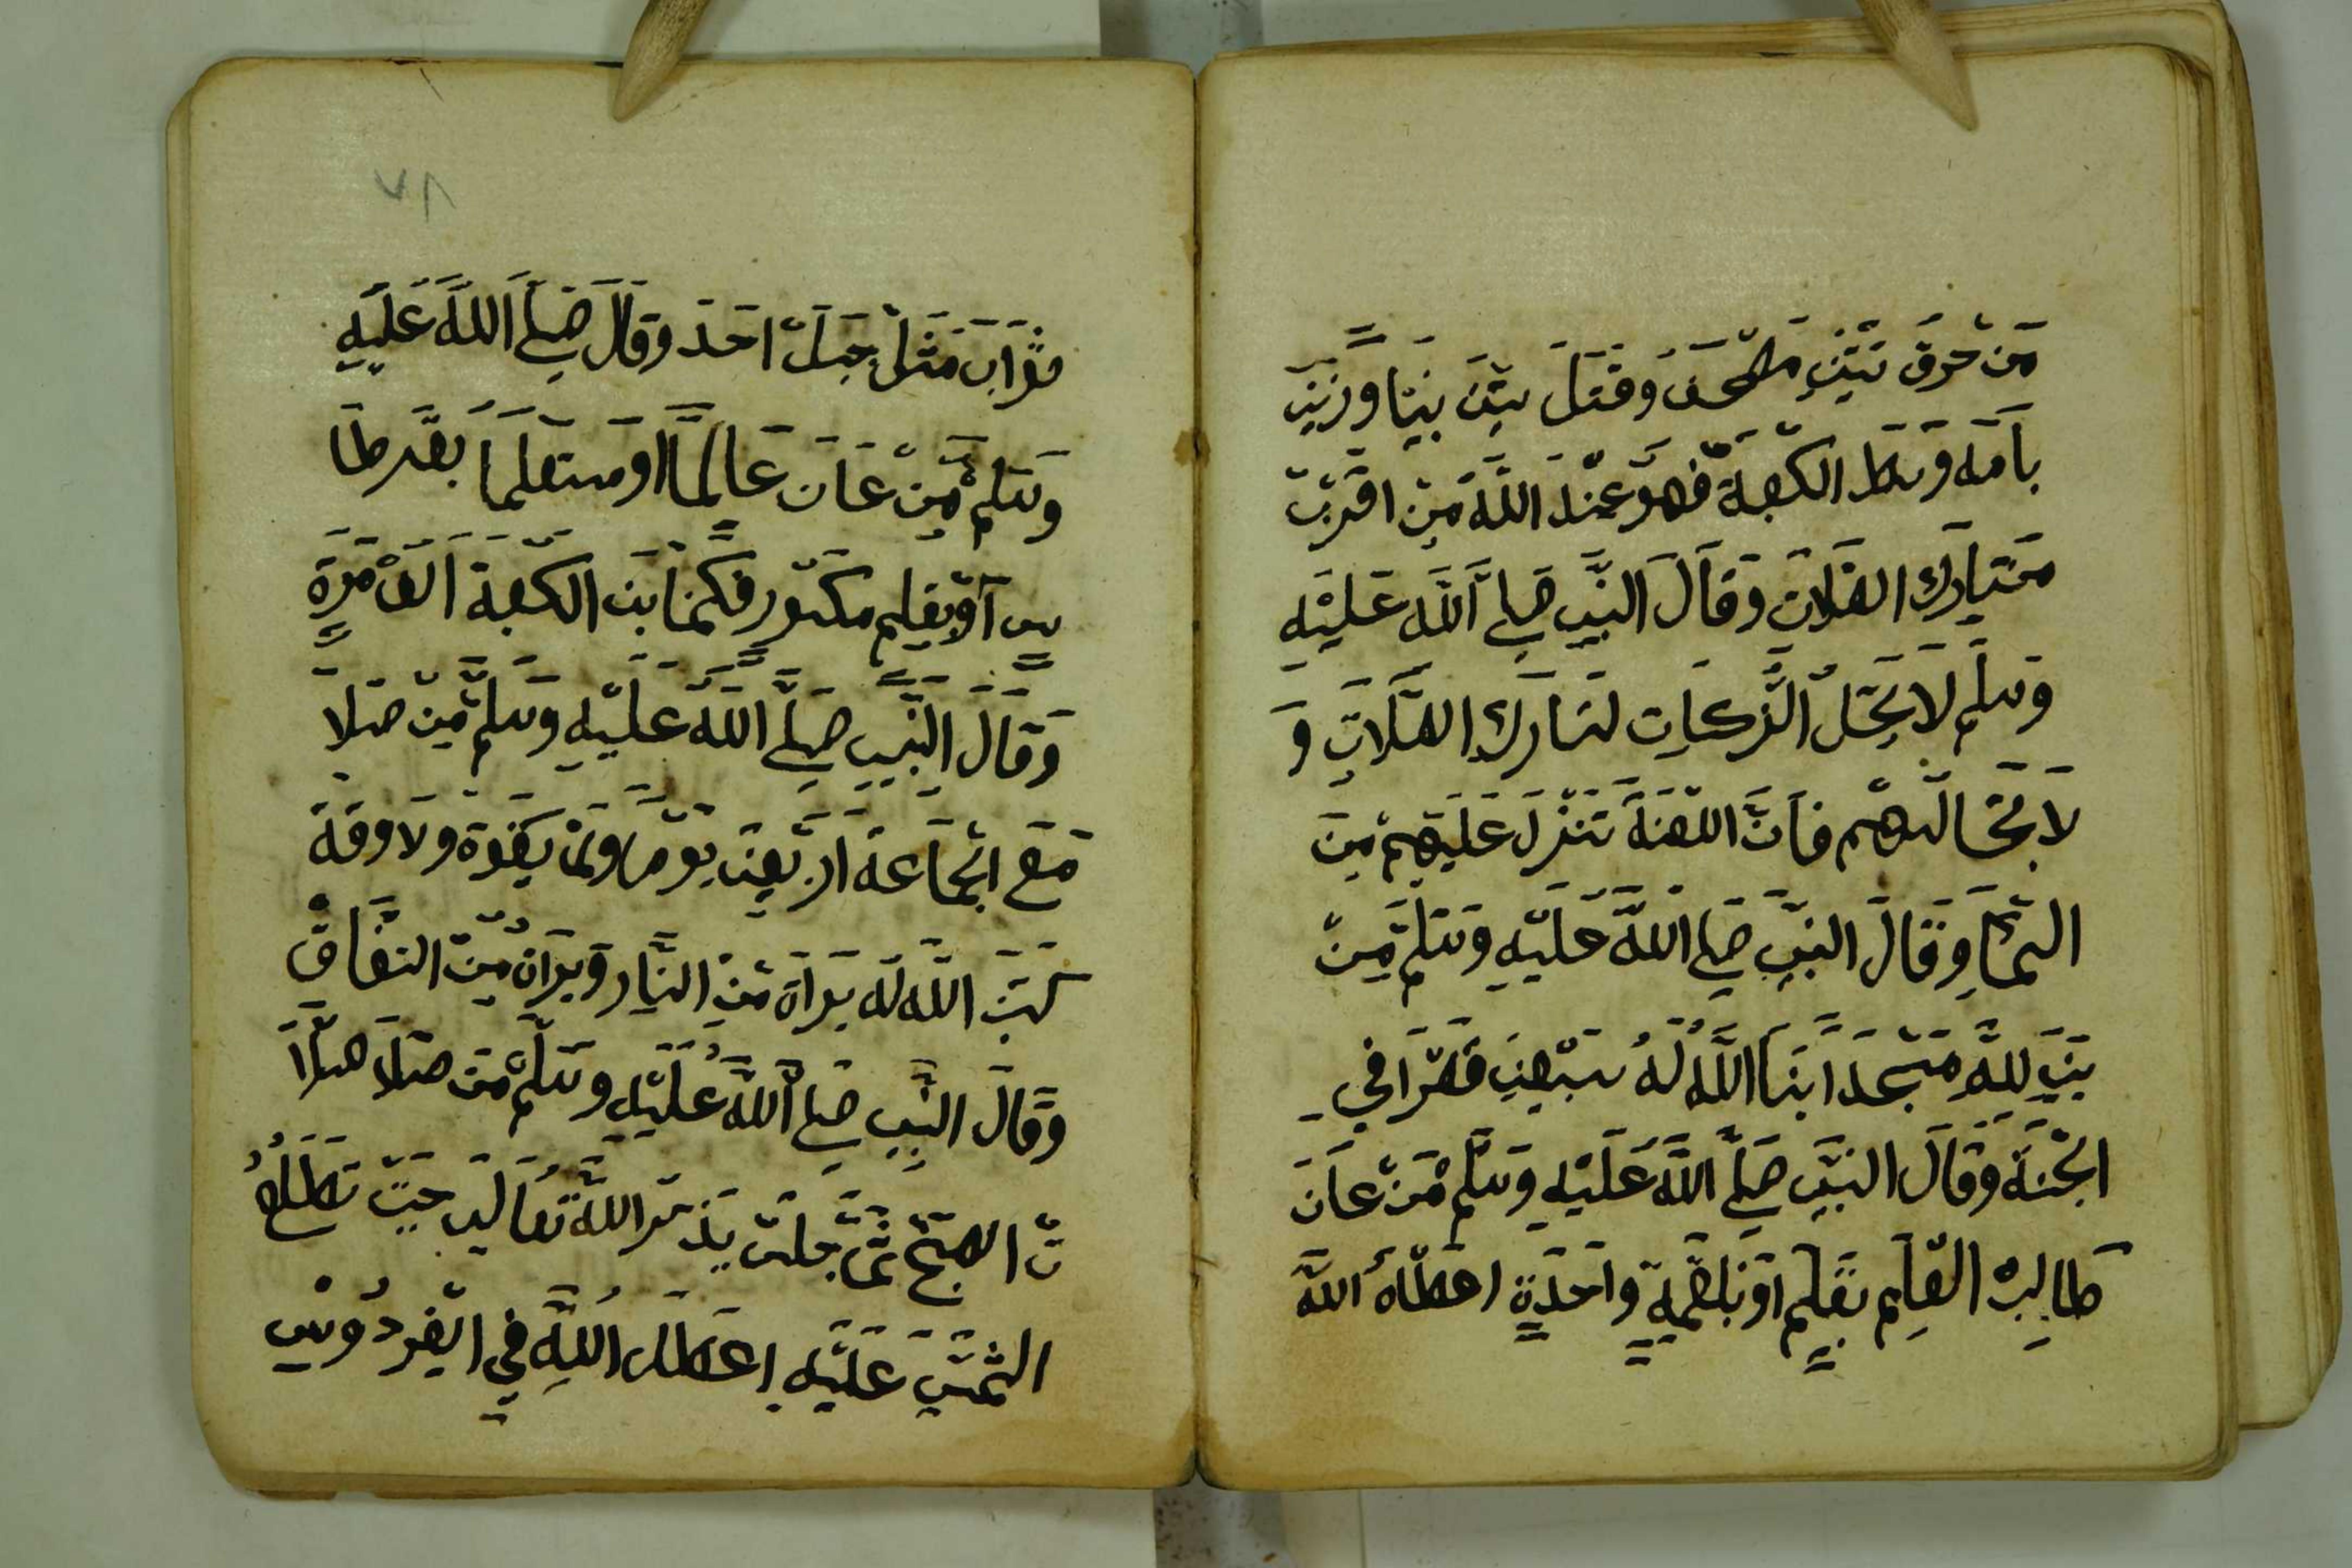 مَن حرق تتين مصحف وقتل بتن بنيا وزنيٰ
بامه وسط الكعبة فهو عند الله من اقرب
من تارك الصلات وقال النبي صلي الله عليه
وسلم لا يحل الزكات لتارك الصلات و
لا تجالسهم فان اللعنة تنزل عليهم من
السماء وقال النبي صلي الله عليه وسلم من
بني لله مسجدا بنا الله له سبعين قصرا في
الجنة وقال النبي صلي الله عليه وسلم من عان
طالبه العلم بقلم او بلقمة واحدة اعطاه الله
١٧
ثواب مثل جبل احد وقال صلي الله عليه
وسلم من عان عالما او متعلما بقرطا
س او بقلم مكسور فكانما بنى الكعبة الف مرة
وقال النبي صلي الله عليه وسلم من صلا
مع الجماعة اربعين يوما ولم يفوه ولا وقة
كتب الله له براة من النار وبراة من النفاق
وقال النبي صلي الله عليه وسلم من صلا صلا
ت الصبح ثم جلس يذكر الله تعالي حتي تطلع
الشمس عليه اعطاه الله في الفردوس